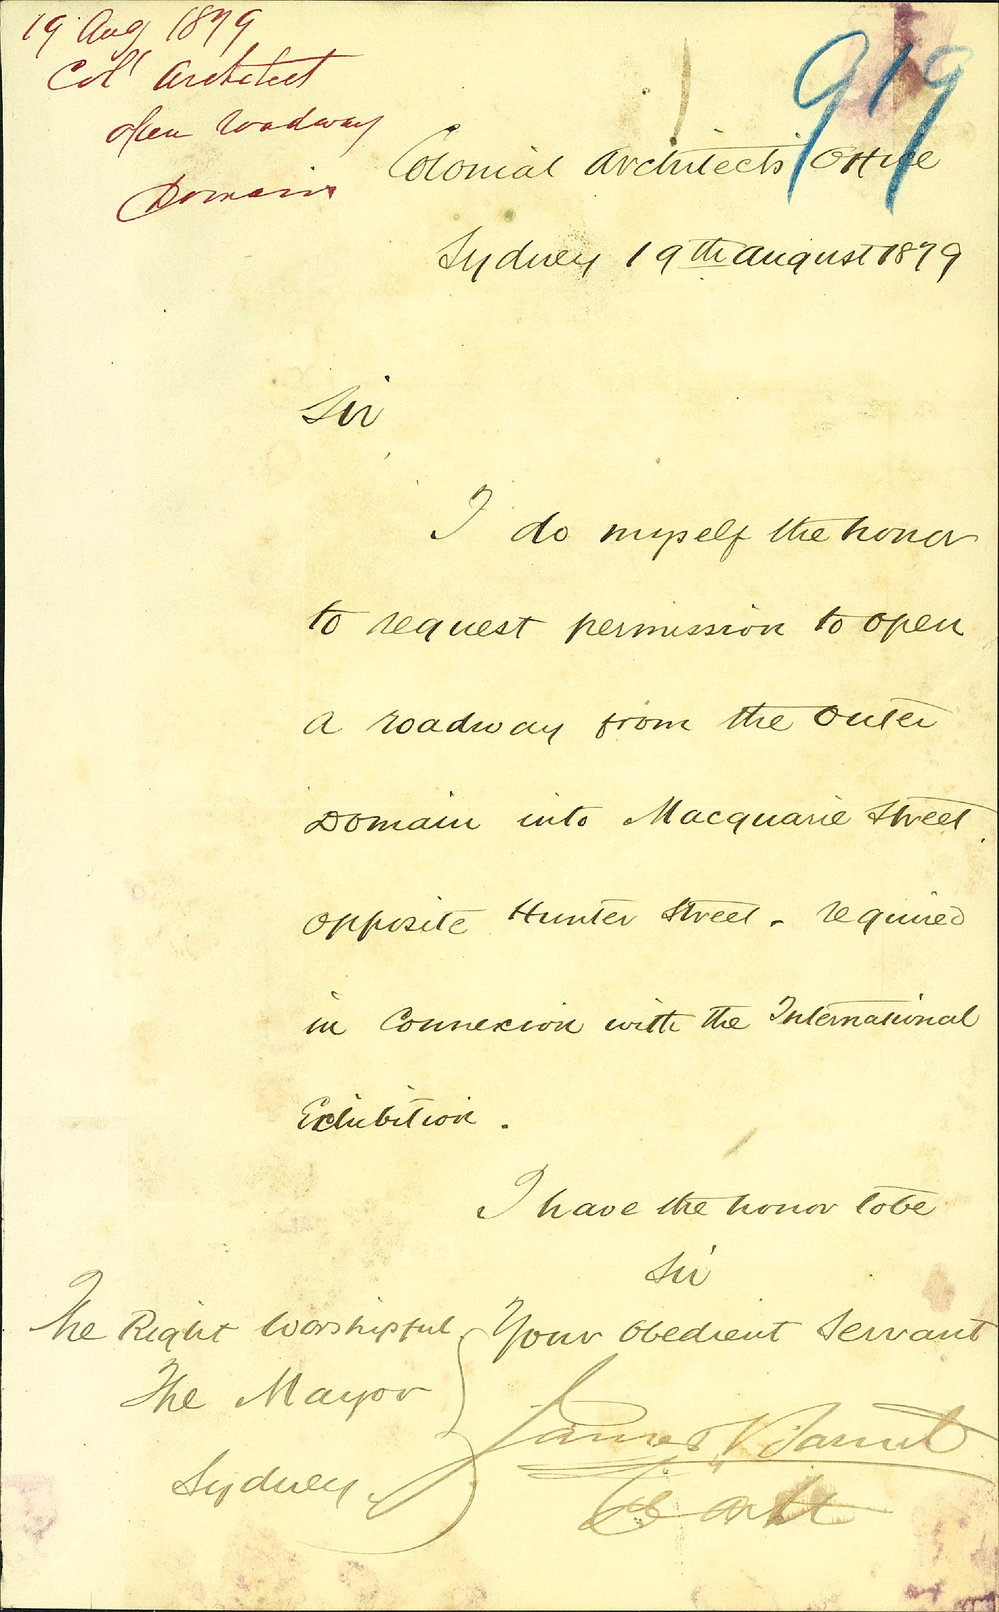 19 Aug 1879
Col Architect
open roadway
Domain
919
Colonial Architects Office
Sydney 19th August 1879
Sir
I do myself the honor
to request permission to open
a roadway from the Outer
Domain into Macquarie Street
opposite Hunter Street - required
in Connexion with the International
Exhibition.
I have the honor to be
Sir
Your Obedient Servant
James Barnet
Col Archt
The Right Worshipful
The Mayor
Sydney